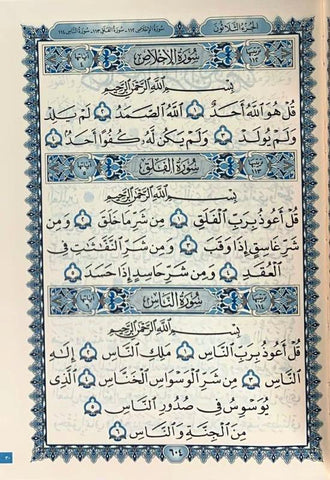 الجزء الثلاثون
سورة الإخلاص ١١٢ - سورة الفلق ١١٣ - سورة الناس ١١٤
سُورَةُ الإِخْلَاصِ
١١٢
بِسْمِ ٱللَّهِ ٱلرَّحْمَٰنِ ٱلرَّحِيمِ
قُلْ هُوَ ٱللَّهُ أَحَدٌ ١ ٱللَّهُ ٱلصَّمَدُ ٢ لَمْ يَلِدْ
وَلَمْ يُولَدْ ٣ وَلَمْ يَكُن لَّهُۥ كُفُوًا أَحَدٌۢ ٤
سُورَةُ الْفَلَقِ
١١٣
بِسْمِ ٱللَّهِ ٱلرَّحْمَٰنِ ٱلرَّحِيمِ
قُلْ أَعُوذُ بِرَبِّ ٱلْفَلَقِ ١ مِن شَرِّ مَا خَلَقَ ٢ وَمِن
شَرِّ غَاسِقٍ إِذَا وَقَبَ ٣ وَمِن شَرِّ ٱلنَّفَّٰثَٰتِ فِى
ٱلْعُقَدِ ٤ وَمِن شَرِّ حَاسِدٍ إِذَا حَسَدَ ٥
سُورَةُ النَّاسِ
١١٤
بِسْمِ ٱللَّهِ ٱلرَّحْمَٰنِ ٱلرَّحِيمِ
قُلْ أَعُوذُ بِرَبِّ ٱلنَّاسِ ١ مَلِكِ ٱلنَّاسِ ٢ إِلَٰهِ
ٱلنَّاسِ ٣ مِن شَرِّ ٱلْوَسْوَاسِ ٱلْخَنَّاسِ ٤ ٱلَّذِى
يُوَسْوِسُ فِى صُدُورِ ٱلنَّاسِ ٥
مِنَ ٱلْجِنَّةِ وَٱلنَّاسِ ٦
٦٠٤
٣٠